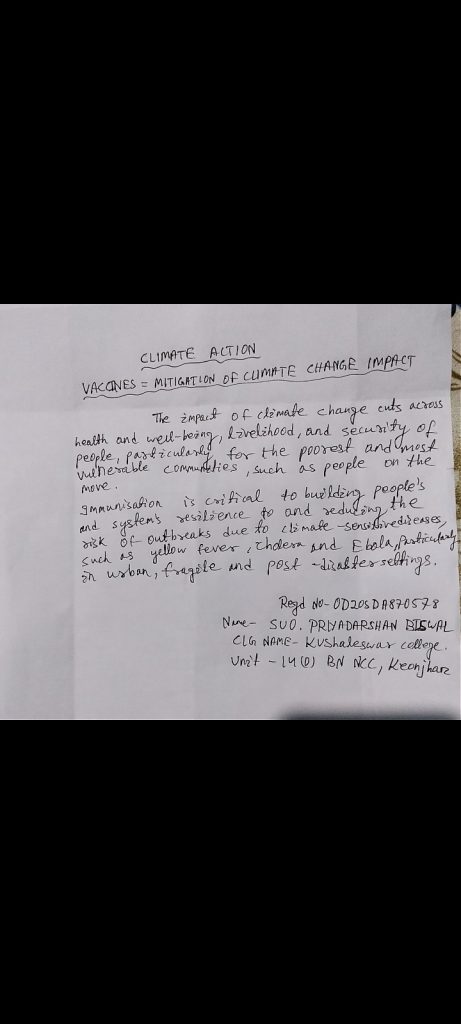 CLIMATE ACTION
VACCINES = MITIGATION OF CLIMATE CHANGE IMPACT
The impact of climate change cuts across
health and well-being, livelihood, and security of
people, particularly for the poorest and most
vulnerable communities, such as people on the
move.
Immunisation is critical to building people's
and system's resilience to and reducing the
risk of outbreaks due to climate-sensitive diseases,
such as yellow fever, cholera and Ebola, particularly
in urban, fragile and post-disaster settings.
Regd No- OD20SDA870578
Name- SUO. PRIYADARSHAN BISWAL
CLG NAME- Kushaleswar college.
Unit - 14(O) BN NCC, Keonjhar